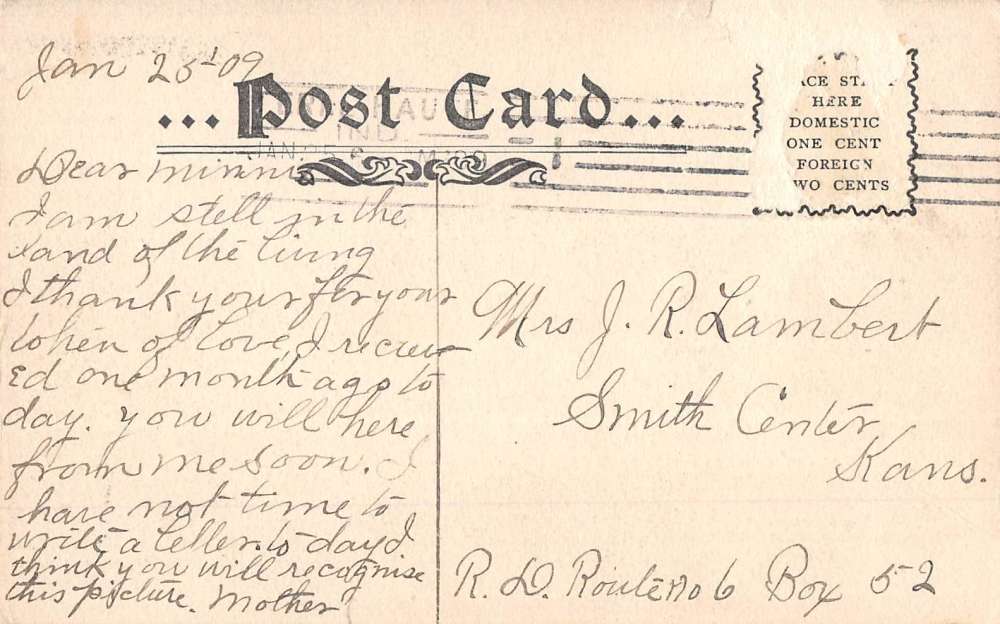 Jan 25 09
...Post Card...
IND.
JAN 25
CE ST
HERE
DOMESTIC
ONE CENT
FOREIGN
WO CENTS
Dear Minni
I am stell in the
land of the living
I thank your for your
token of love, I reciev
ed one month ago to
day. you will here
from me soon. I
have not time to
write a letter to day I
think you will recognise
this picture. Mother
Mrs J. R. Lambert
Smith Center
Kans.
R. D. Route no 6 Box 52